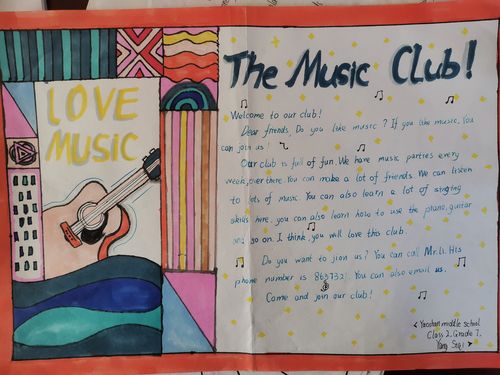 LOVE
MUSIC
The Music Club!
Welcome to our club!
Dear friends, Do you like music? If you like music, You
can join us!
Our club is full of fun. We have music parties every
week, over there. You can make a lot of friends. We can listen
to lots of music. You can also learn a lot of singing
skills here, you can also learn how to use the phano, guitar
and so on. I think, you will love this club.
Do you want to jion us? You can call Mr.Li. His
phone number is 863732. You can also email us.
Come and join our club!
Class 2, Grade 7.
Yang